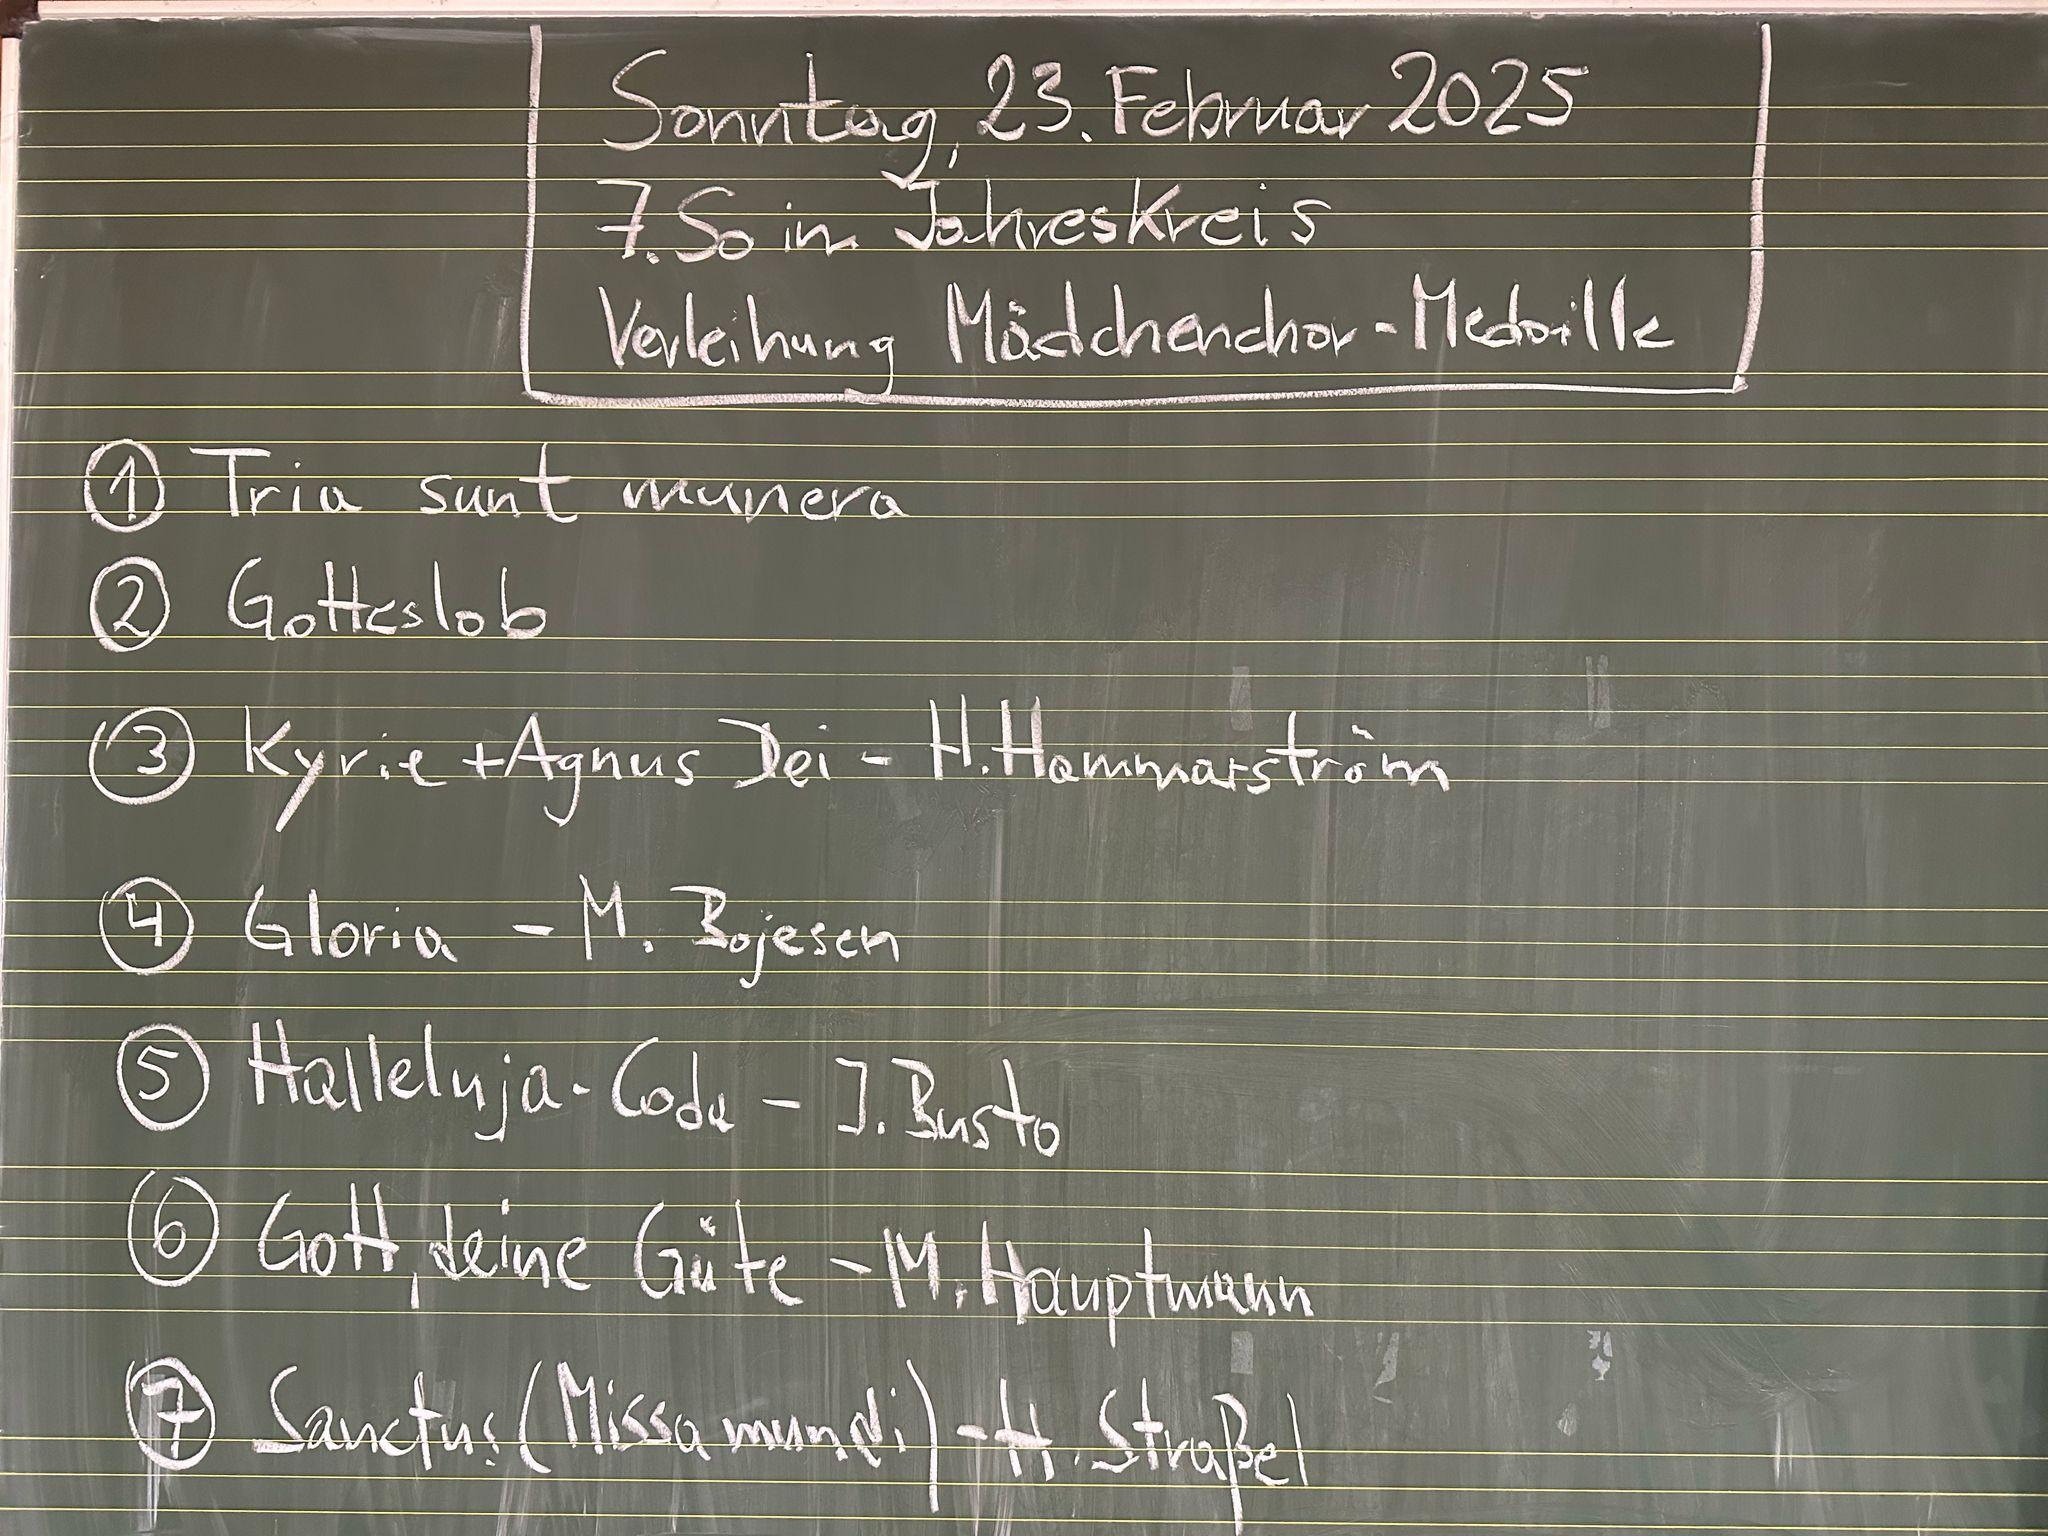 Sonntag, 23. Februar 2025
7. So im Jahreskreis
Verleihung Mädchenchor-Medaille
① Tria sunt munera
② Gotteslob
③ Kyrie + Agnus Dei - H. Hammarström
④ Gloria - M. Bojesen
⑤ Halleluja-Coda - J. Busto
⑥ Gott, deine Güte - M. Hauptmann
⑦ Sanctus (Missa mundi) - H. Straßel